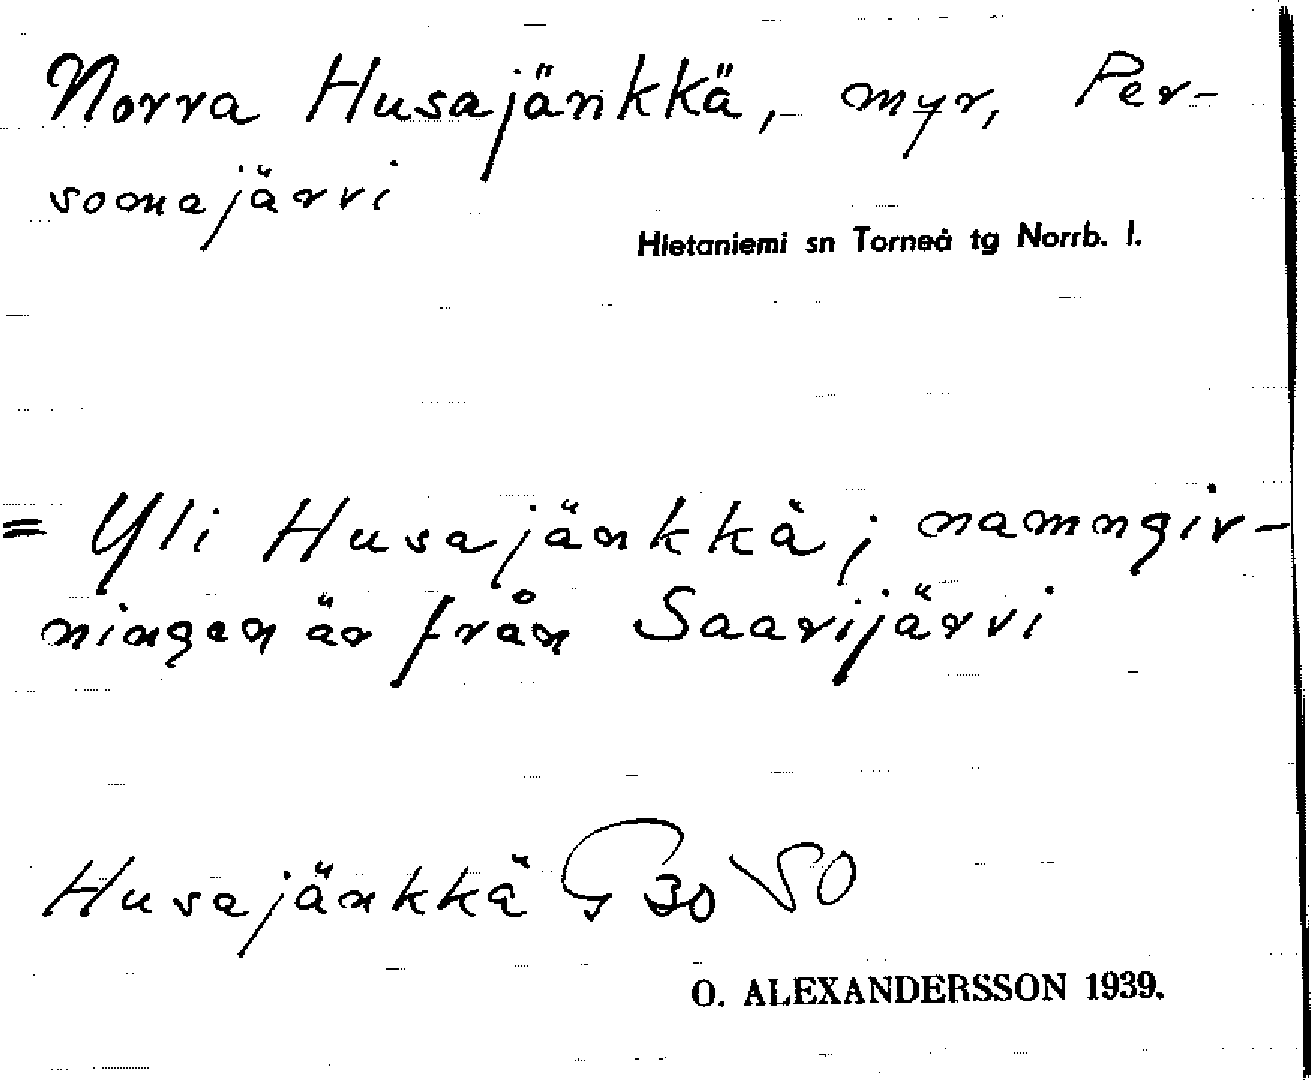 Norra Husajänkkä, myr, Per-
soomajärvi
Hietaniemi sn Torneå tg Norrb. l.
= Yli Husajänkkä; namngiv-
ningen är från Saarijärvi
Husajänkkä G 30 SO
O. ALEXANDERSSON 1939.